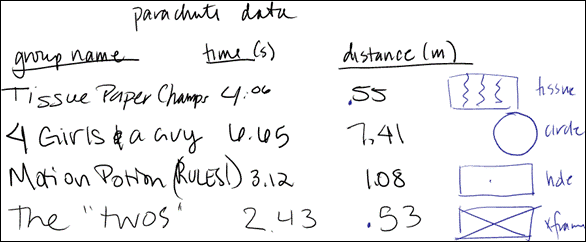 parachute data
group name time (s) distance (m)
Tissue Paper Champs 4.06 .55 tissue
4 Girls & a guy 6.65 7.41 circle
Motion Potion (RULES!) 3.12 1.08 hole
The "twos" 2.43 .53 xframe